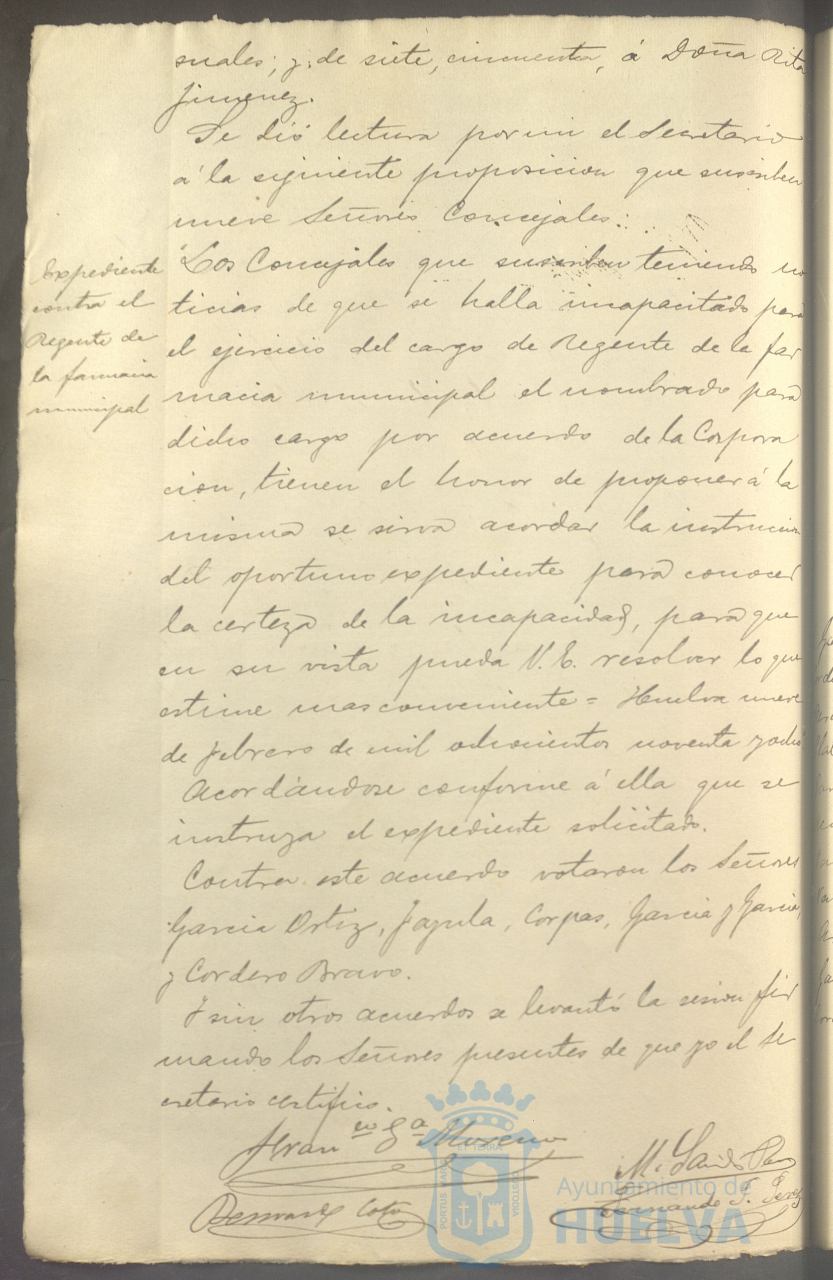 suales; y de siete, cincuenta, á Doña Rita
Jimenez.
Se dió lectura por mi el Secretario
á la siguiente proposicion que suscriben
nueve Señores Concejales:
Expediente
contra el
Regente de
la farmacia
municipal
"Los Concejales que suscriben teniendo no
ticias de que se halla incapacitado para
el ejercicio del cargo de Regente de la far
macia municipal el nombrado para
dicho cargo por acuerdo de la Corpora
cion, tienen el honor de proponer á la
misma se sirva acordar la instruccion
del oportuno expediente para conocer
la certeza de la incapacidad, para que
en su vista pueda V.E. resolver lo que
estime mas conveniente = Huelva nueve
de Febrero de mil ochocientos noventa y ocho
Acordándose conforme á ella que se
instruya el expediente solicitado.
Contra este acuerdo votaron los Señores
Garcia Ortiz, Japula, Corpas, Garcia y Garcia,
y Cordero Bravo.
Y sin otros acuerdos se levantó la sesion fir
mando los Señores presentes de que yo el Se
cretario certifico.
Fran.co G.a Moreno
Bernardo Coto
Fernando
PORTUS MARIS
ET TERRA
CUSTODIA
Ayuntamiento de
HUELVA